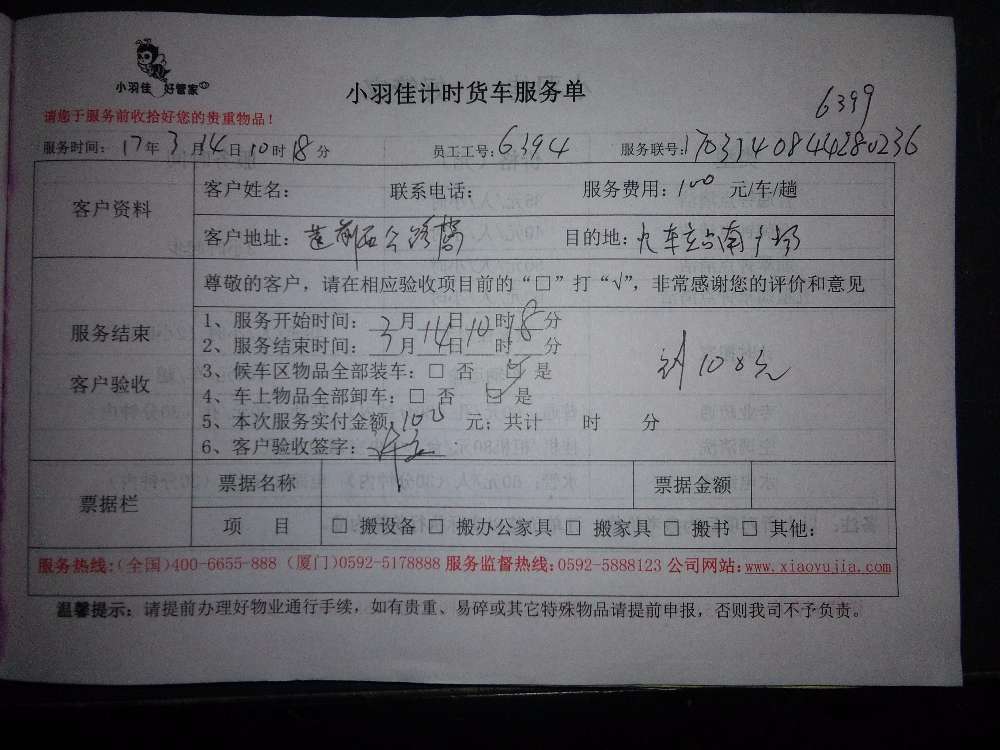 小羽佳 好管家
小羽佳计时货车服务单
6399
请您于服务前收拾好您的贵重物品！
服务时间：17年3月14日10时18分 员工工号：6394 服务联号：1703140844280236
客户资料
客户姓名： 联系电话： 服务费用：100 元/车/趟
客户地址： 目的地：火车站南广场
服务结束
客户验收
尊敬的客户，请在相应验收项目前的“□”打“√”，非常感谢您的评价和意见
1、服务开始时间：3月14日10时18分
2、服务结束时间：___月___日___时___分
3、候车区物品全部装车：□ 否 ☑ 是
4、车上物品全部卸车：□ 否 ☑ 是
计100元
5、本次服务实付金额：100 元；共计 时 分
6、客户验收签字：
票据栏
票据名称 票据金额
项 目 □ 搬设备 □ 搬办公家具 □ 搬家具 □ 搬书 □ 其他：
服务热线：(全国)400-6655-888 (厦门)0592-5178888 服务监督热线：0592-5888123 公司网站：www.xiaoyujia.com
温馨提示：请提前办理好物业通行手续，如有贵重、易碎或其它特殊物品请提前申报，否则我司不予负责。